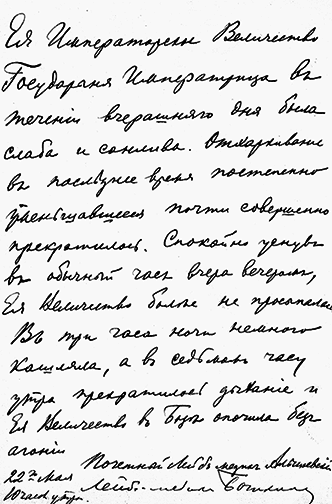 Ея Императорское Величество
Государыня Императрица въ
теченіи вчерашняго дня была
слаба и сонлива. Отхаркиваніе
въ послѣднее время постепенно
уменьшавшееся почти совершенно
прекратилось. Спокойно уснувъ
въ обычный часъ вчера вечеромъ,
Ея Величество болѣе не просыпалась.
Въ три часа ночи немного
кашляла, а въ седьмомъ часу
утра прекратилось дыханіе и
Ея Величество въ Бозѣ опочила безъ
агоніи
Почетный Лейбъ-медикъ Алышевскій
22го Мая Лейбъ-медикъ Боткинъ
10 час. утра.